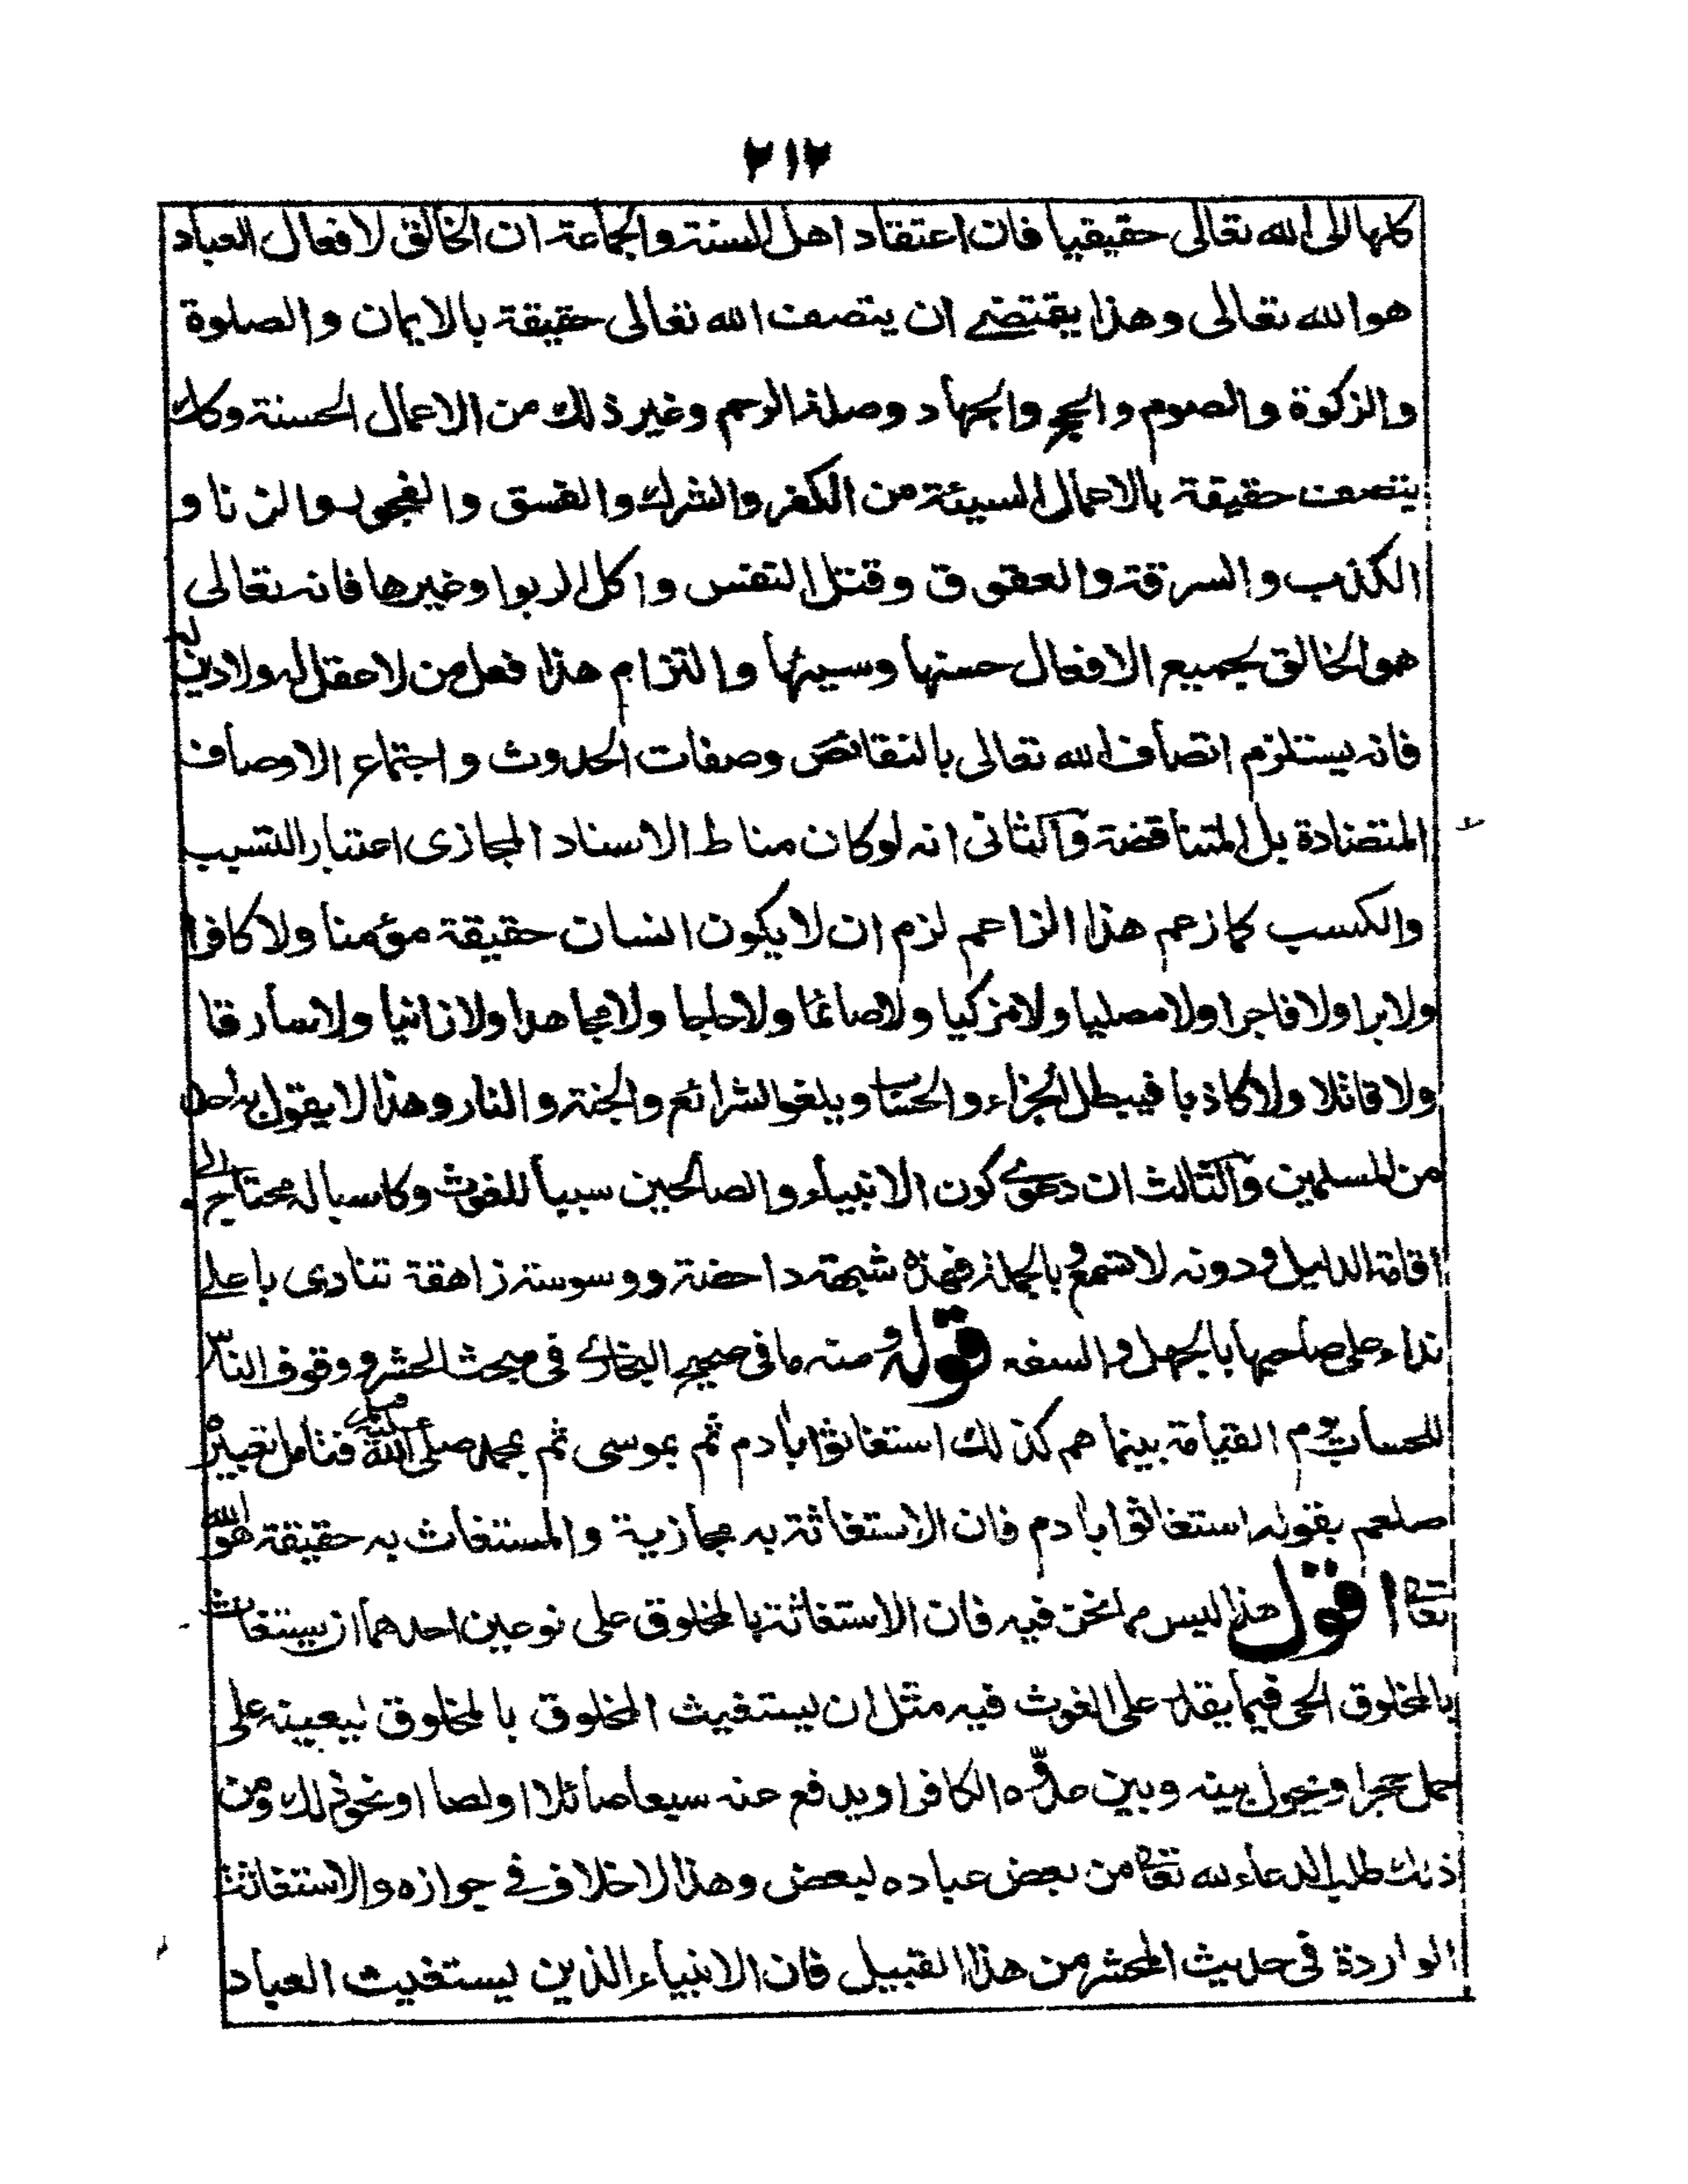 ٢١٢
كلها الى الله تعالى حقيقيا فان اعتقاد اهل السنة والجماعة ان الخالق لافعال العباد
هو الله تعالى وهذا يقتضے ان يتصف الله تعالى حقيقة بالايمان والصلوة
والزكوة والصوم والحج والجهاد وصلة الرحم وغير ذلك من الاعمال الحسنة وكذلك
يتصف حقيقة بالاعمال السيئة من الكفر والشرك والفسق والفجور والزنا و
الكذب والسرقة والعقوق وقتل النفس واكل الربوا وغيرها فانه تعالى
هو الخالق لجميع الافعال حسنها وسيئها والتزام هذا فعل من لا عقل له ولا دين له
فانه يستلزم اتصاف الله تعالى بالنقائص وصفات الحدوث واجتماع الاوصاف
المتضادة بل المتناقضة والثانى انه لو كان مناط الاسناد المجازى اعتبار التسبب
والكسب كما زعم هذا الزاعم لزم ان لا يكون انسان حقيقة مؤمنا ولا كافرا
ولا برا ولا فاجرا ولا مصليا ولا مزكيا ولا صائما ولا حاجا ولا مجاهدا ولا زانيا ولا سارقا
ولا قاتلا ولا كاذبا فيبطل الجزاء والحساب ويلغو الشرائع والجنة والنار وهذا لا يقول به احد
من المسلمين والثالث ان دعوى كون الانبياء والصالحين سببا للغوث وكاسبا له محتاج الى
اقامة الدليل ودونه لا تسمع وبالجملة فهذه شبهة داحضة ووسوسة زاهقة تنادى باعلى
نداء على صاحبها بالجهل والسفه قوله ومنه ما فى صحيح البخارى فى مبحث الحشر ووقوف الناس
للحساب يوم القيامة بينما هم كذلك استغاثوا بآدم ثم بموسى ثم بمحمد صلى الله عليه وسلم فتامل تعبيره
صلعم بقوله استغاثوا بآدم فان الاستغاثة به مجازية والمستغاث به حقيقة هو الله
تعالى اقول هذا ليس مما نحن فيه فان الاستغاثة بالمخلوق على نوعين احدهما ان يستغاث
بالمخلوق الحى فيما يقدر على الغوث فيه مثل ان يستغيث المخلوق بالمخلوق ليعينه على
حمل حجر او يحول بينه وبين عدوه الكافر او يدفع عنه سبعا صائلا او لصا او نحو ذلك ومن
ذلك طلب الدعاء لله تعالى من بعض عباده لبعض وهذا لا خلاف فى جوازه والاستغاثة
الواردة فى حديث المحشر من هذا القبيل فان الانبياء الذين يستغيث العباد